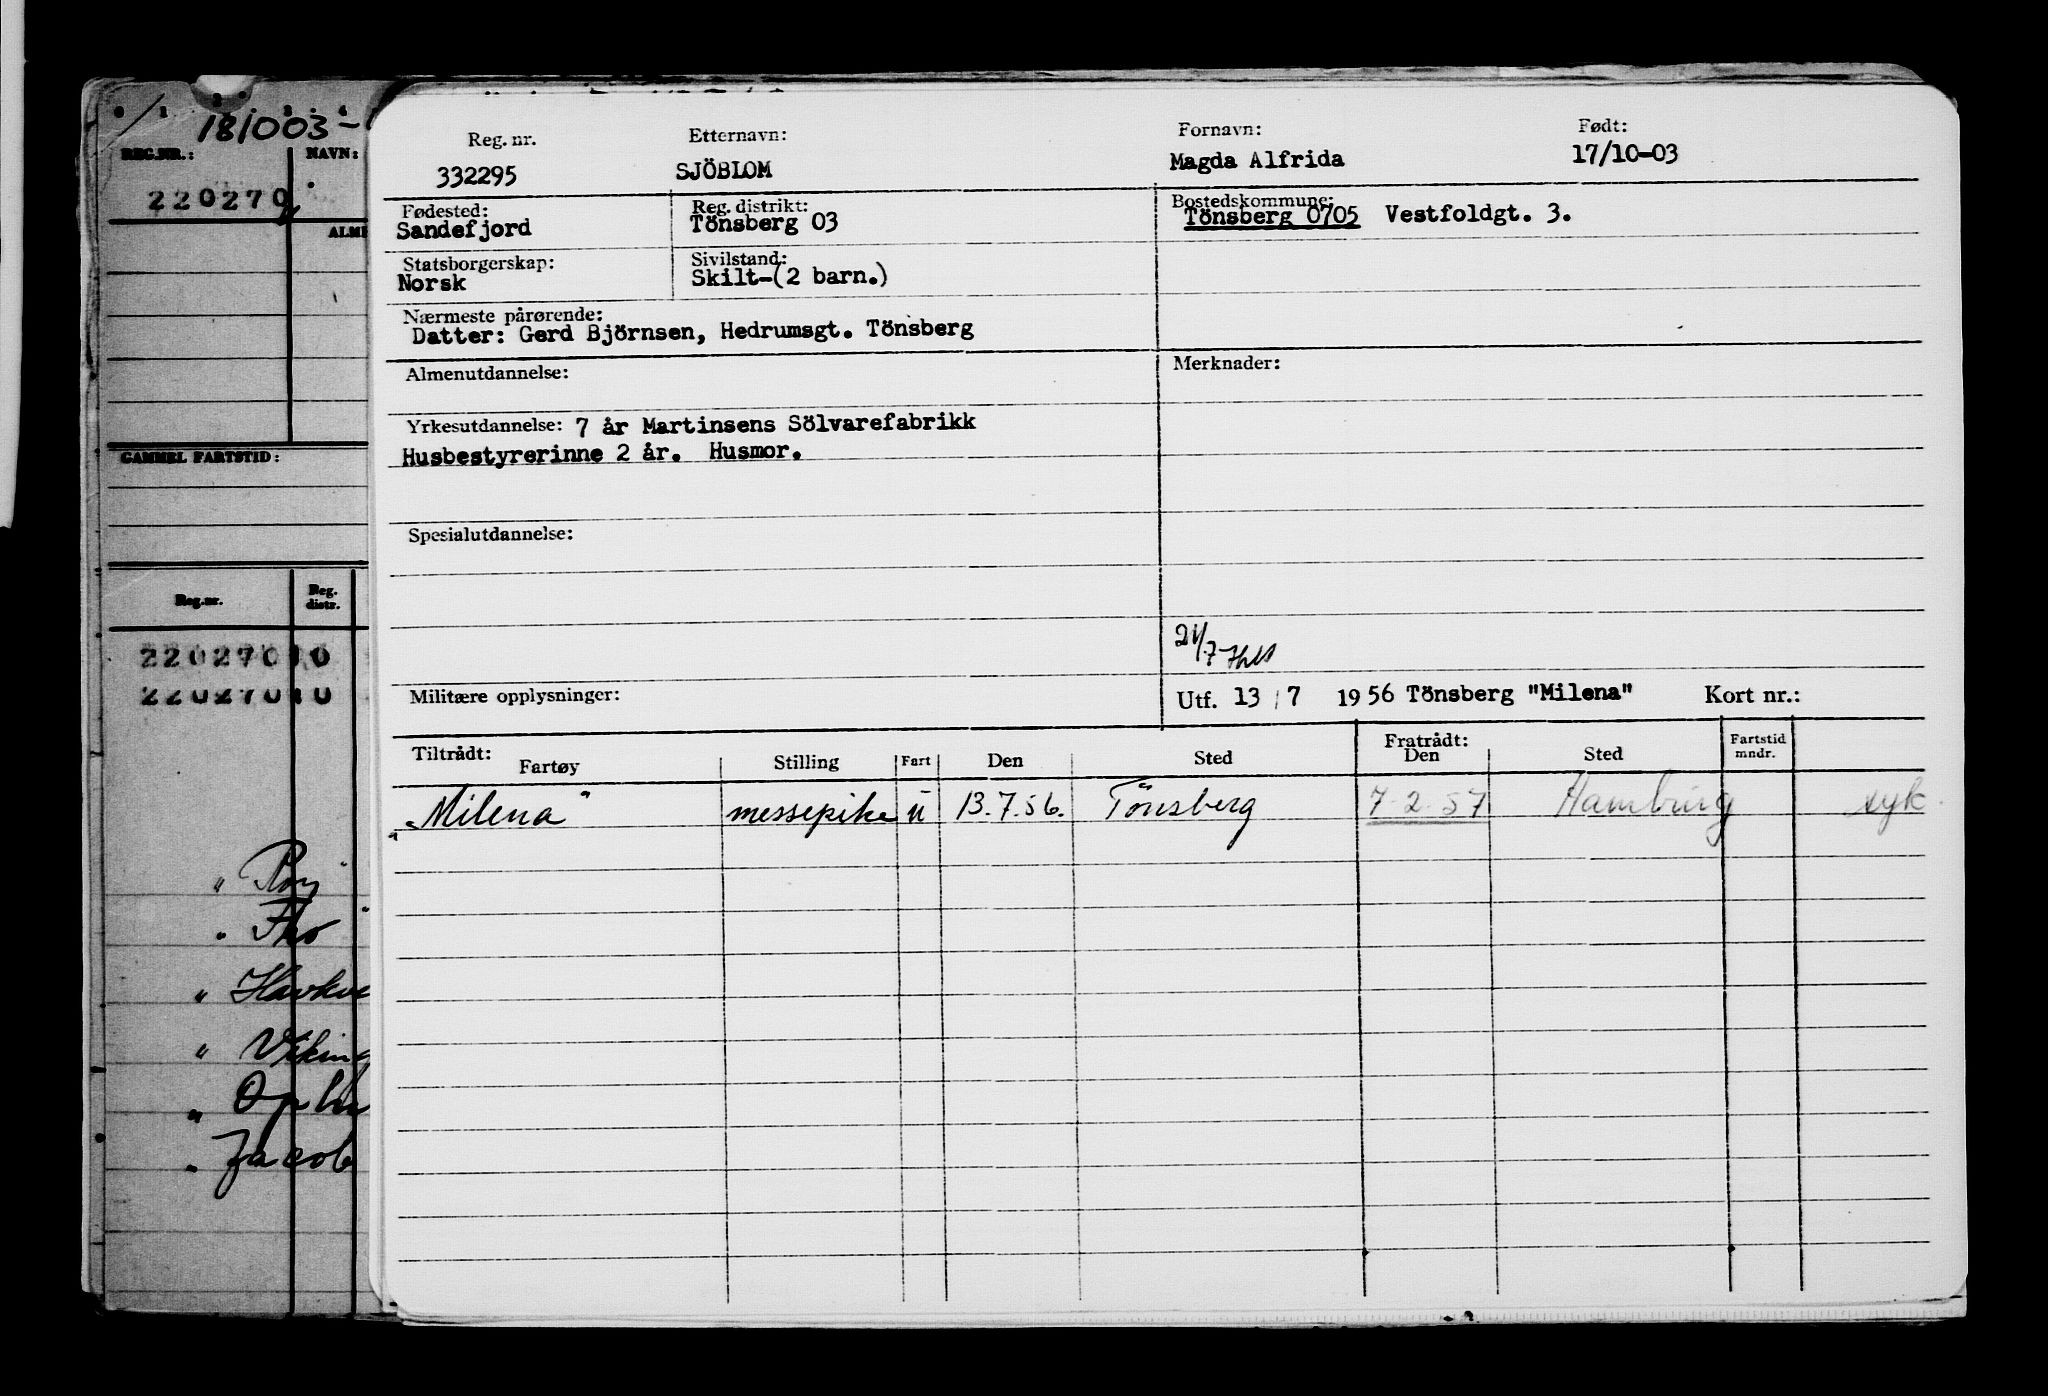 181003-
REG.NR.:
NAVN:
220270
GAMMEL FARTSTID:
Reg.nr.
Reg. distr.
220270 10
220270 10
Reg. nr.
Etternavn:
Fornavn:
Født:
332295
SJÖBLOM
Magda Alfrida
17/10-03
Fødested:
Reg. distrikt:
Bostedskommune:
Sandefjord
Tönsberg 03
Tönsberg 0705 Vestfoldgt. 3.
Statsborgerskap:
Sivilstand:
Norsk
Skilt-(2 barn.)
Nærmeste pårørende:
Datter: Gerd Björnsen, Hedrumsgt. Tönsberg
Almenutdannelse:
Merknader:
Yrkesutdannelse: 7 år Martinsens Sölvarefabrikk
Husbestyrerinne 2 år. Husmor.
Spesialutdannelse:
Militære opplysninger:
Utf. 13 / 7 1956 Tönsberg "Milena" Kort nr.:
Tiltrådt:
Fratrådt:
Fartøy
Stilling
Fart
Den
Sted
Den
Sted
Fartstid mndr.
"Milena" messepike u 13.7.56. Tönsberg 7.2.57 Hamburg syk.
"Viking